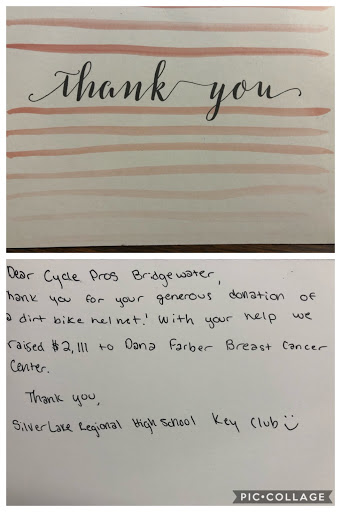 thank you
Dear Cycle Pros Bridgewater,
hank you for your generous donation of
a dirt bike helmet! With your help we
raised $2,111 to Dana Farber Breast Cancer
Center.
Thank you,
Silver Lake Regional High School Key Club
PIC•COLLAGE